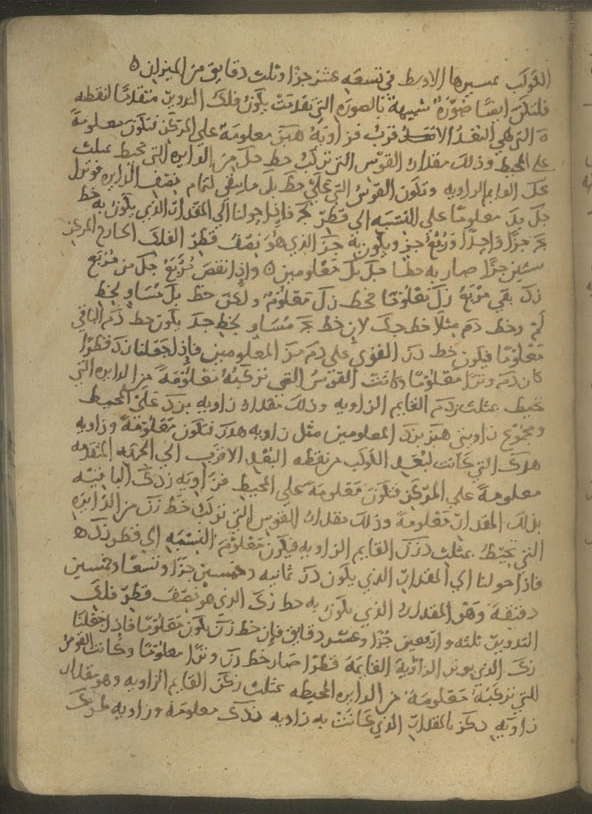 الكوكب بمسيرها الاوسط في تسعه عشر جزا وثلث دقايق من الميزان ه
فلتكن ايضا صورة شبيهة بالصورة التي تقدمت يكون فلك التدوير متقدما لنقطه
ه التي هي البعد الاقرب فزاويه معلومة على المركز فتكون معلومة
على المحيط وذلك مقدار القوس التي تركب خط حل من الدايره التي تحيط بمثلث
حل القايم الزاويه وتكون القوس التي على خط بل ما يبقى لتمام نصف الدايره فوترا
حل بل معلوما على النسبه الى قطر جح فاذا حولنا الى المقدار الذي يكون به خط
جح جزا واحدا وربع جز ويكون به جز الذي هو نصف قطر الفلك الخارج المركز
ستين جزا صار به خطا حل بل معلومين ه واذا نقص مربع حل من مربع
دك بقي مربع دل معلوما فخط دل معلوم ولكن خط بل مساو لخط
لم وخط دم مثلا خط حل لان خط جح مساو لخط جد يكون خط دم الباقي
معلوما فيكون خط در القوي على دم مر المعلومين فاذا جعلنا ند قطرا
كان دم وترا معلوما وكانت القوس التي تركبه معلومة من الدايره التي
تحيط بمثلث ردم القايم الزاويه وذلك مقدار زاويه برد على المحيط
ومجموع زاويتي هبز برد المعلومين مثل زاويه هدك فتكون معلومة وزاويه
هدك التي كانت لبعد الكوكب من نقطه البعد الاقرب الى الجهه المتقدمه
معلومة على المركز فتكون معلومة على المحيط فزاويه زدك الباقيه
بذلك المقدار معلومة وذلك مقدار القوس التي تركب خط زن من الدايرة
التي تحيط بمثلث دزن القايم الزاويه فيكون معلوم النسبه الى قطر دز ه
فاذا حولنا الى المقدار الذي يكون دز ثمانيه وخمسين جزا وتسعا وخمسين
دقيقة وهو المقدار الذي يكون به خط زك الذي هو نصف قطر فلك
التدوير ثلثه واربعين جزا وعشر دقايق فان خط زن يكون معلوما فاذا جعلنا
زك الذي يوتر الزاوية القايمة قطرا صار خط زن وترا معلوما وكانت القوس
التي تركبه معلومة من الدايرة المحيطه بمثلث زكن القايم الزاويه وهو مقدار
زاويه دكز بالمقدار الذي كانت به زاويه زدك معلومة وزاويه